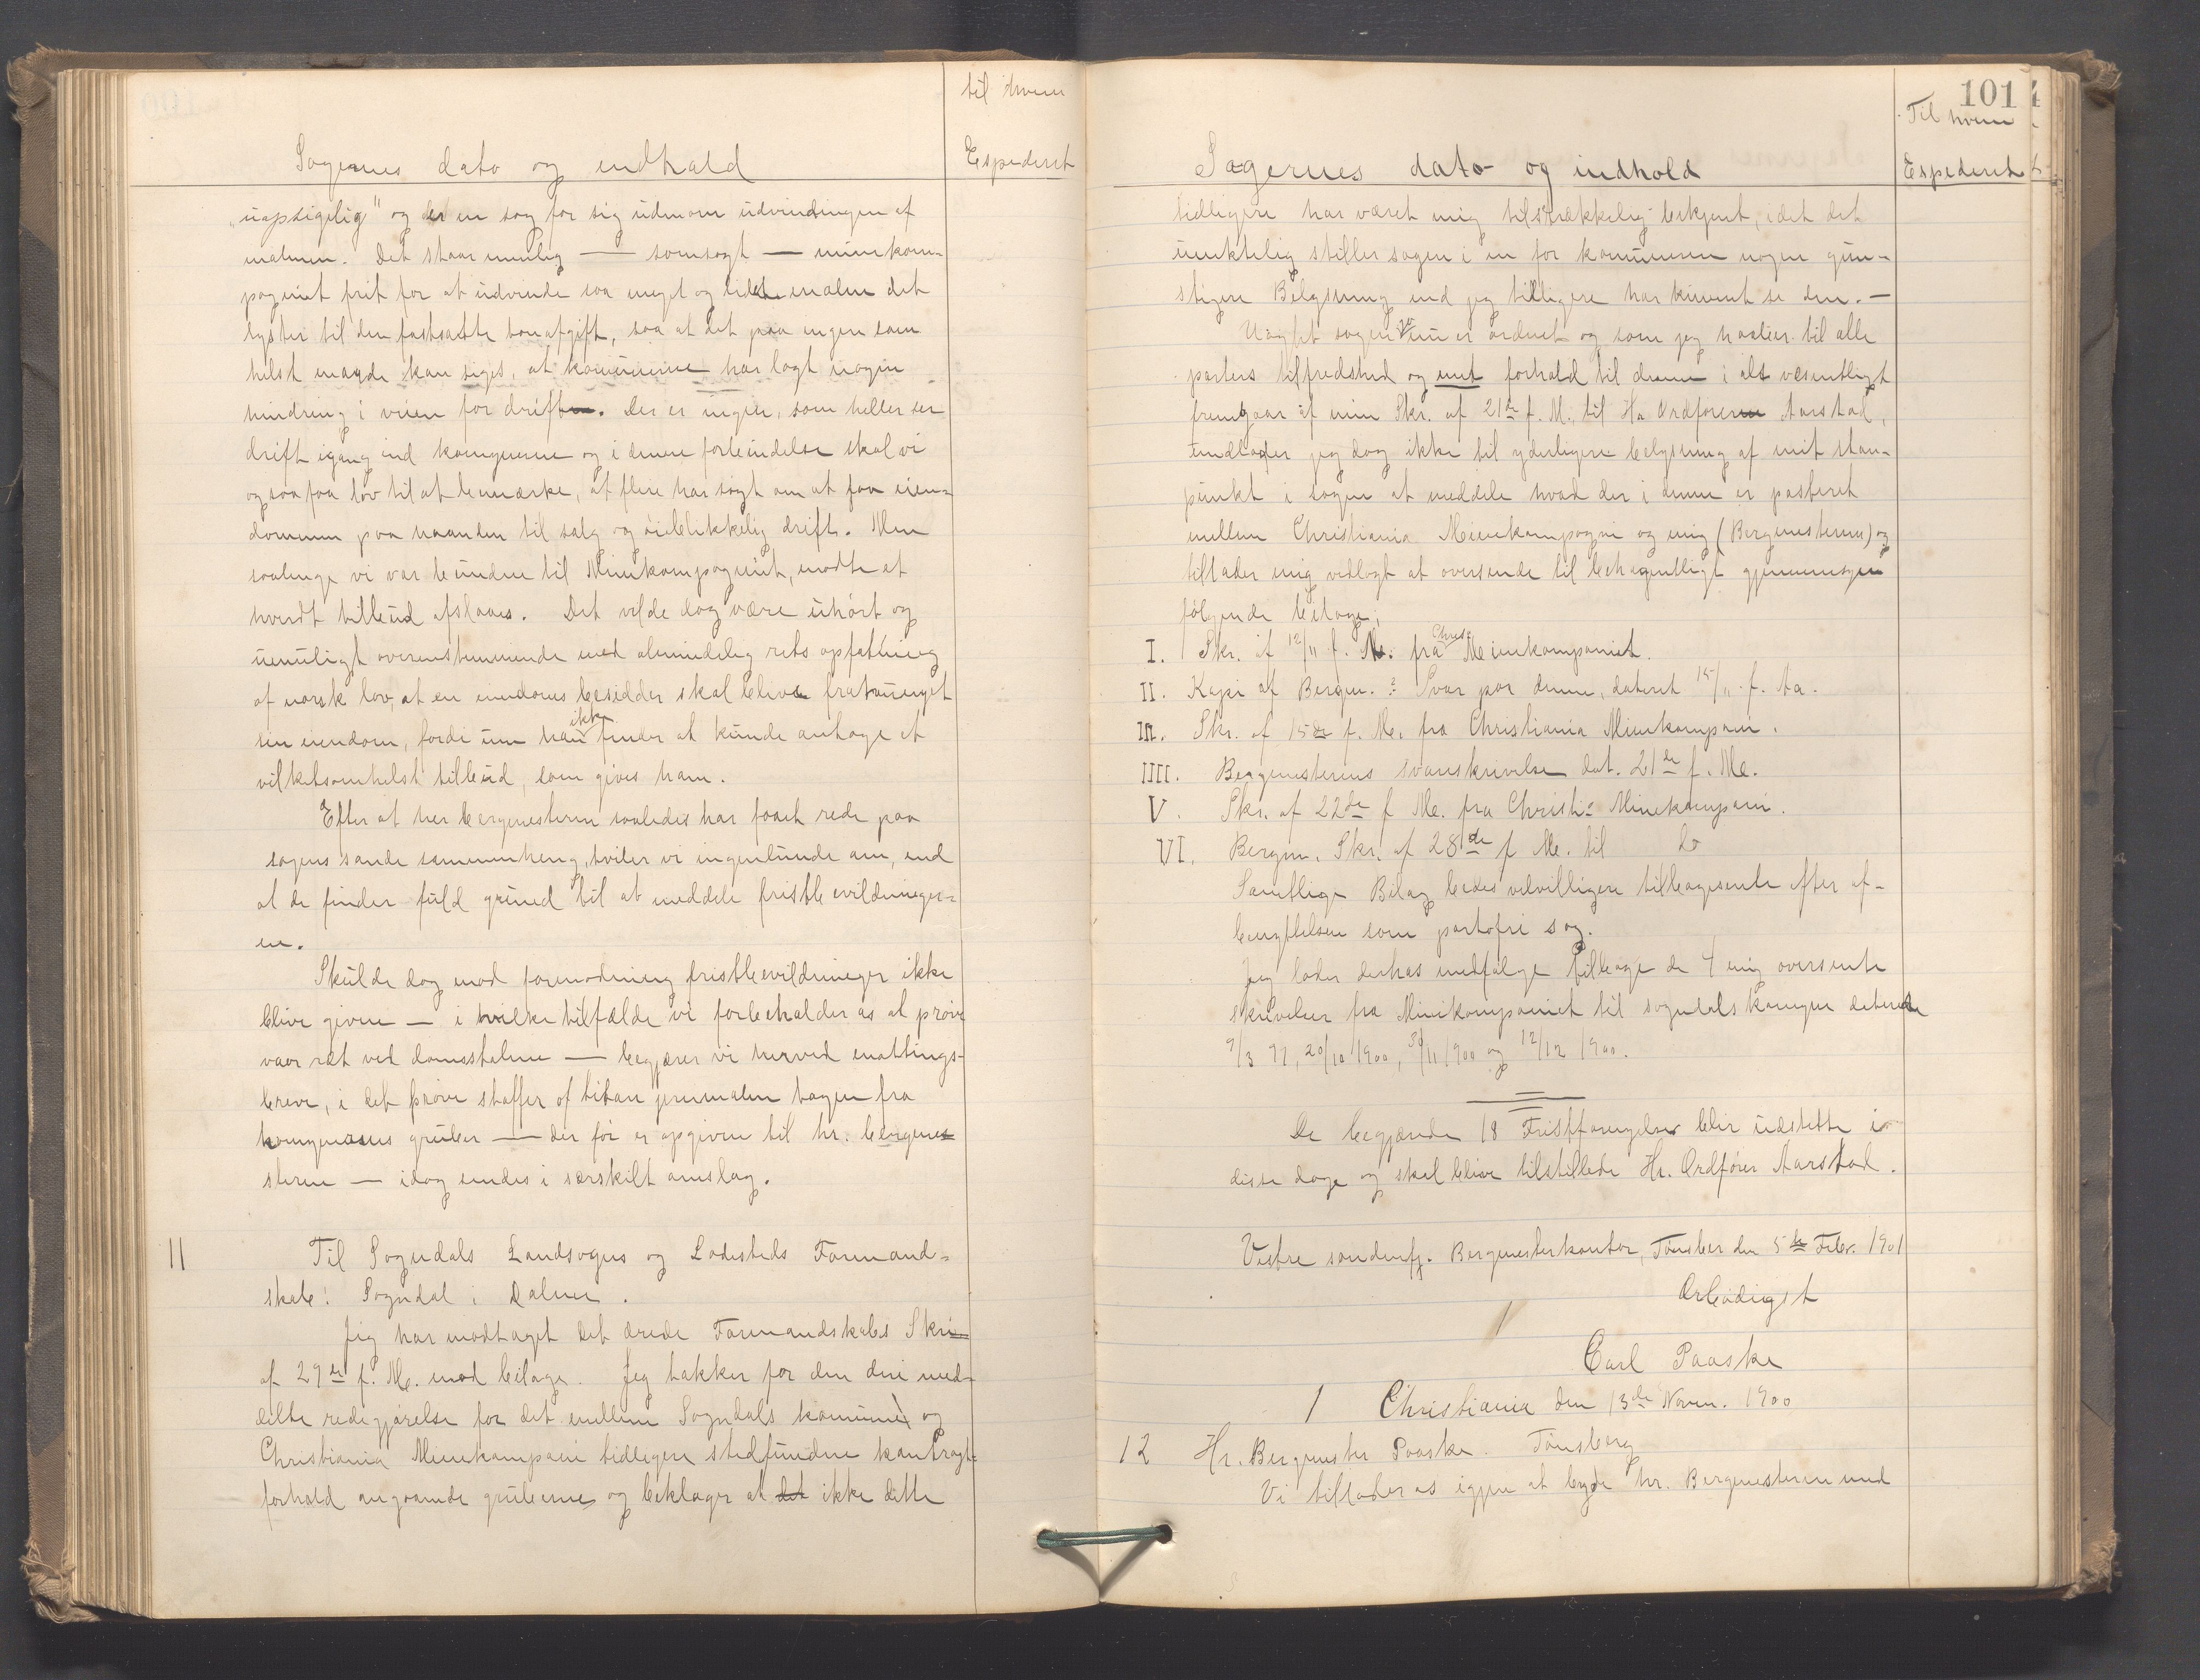 til hvem
Sagernes dato og indhold
Expederet
"uopsigelig" og er en sag for sig udenom udvindingen af
malmen. Det staar nemlig — somsagt — minekom-
pagniet frit for at udvinde saa meget og lidet malm det
lyster til den fastsatte tonafgift, saa at det paa ingen som
helst maade kan siges, at kommunerne har lagt nogen
hindring i veien for driften. Der er ingen, som heller ser
drift igang end kommunerne og i denne forbindelse skal vi
ogsaa faa lov til at bemærke, at flere har søgt om at faa eien-
dommen paa haanden til salg og øieblikkelig drift. Men
saalenge vi var bundne til Minekompagniet, maatte et
hvert tilbud afslaaes. Det vilde dog være uhørt og
umuligt overensstemmende med almindelig rets opfatning
af norsk lov, at en eiendoms besidder skal blive fratvunget
sin eiendom, fordi om han ikke finder at kunde antage et
vilketsomhelst tilbud, som gives ham.
Efter at herr bergmesteren saaledes har faaet rede paa
sagens sande sammenheng, tviler vi ingenlunde om, end
at de finder fuld grund til at meddele fristbevildninger-
en.
Skulde dog mod formodning fristbevildninger ikke
blive givne — i hvilke tilfælde vi forbeholder os at prøve
vaar ret ved domstolene — begjærer vi herved mutings-
breve, i det prøve stoffer af titan jernmalm tagen fra
kommunernes gruber — der før er opgiven til hr. bergmes
steren — idag sendes i særskilt omslag.
11 Til Sogndals Landsogns og Ladesteds Formand-
skab. Sogndal i Dalene.
Jeg har modtaget det ærede Formandskabs Skri
af 29de f. M. med bilage. Jeg takker for den deri med-
delte redegjørelse for det mellem Sogndals kommune og
Christiania Minekompani tidligere stedfundne kontragt-
forhold angaaende gruberne og beklager at det ikke dette
101
Til hvem
Sagernes dato og indhold
Expederet
tidligere har været mig tilstrækkelig bekjent, idet det
unektelig stiller sagen i en for kommunen nogen gun-
stigere Belysning end jeg tidligere har kunnet se den. —
Uagtet sagen nu er ordnet og som jeg haaber til alle
parters tilfredshed og mit forhold til denne i alt væsentligt
fremgaar af min Skr. af 21de f. M. til Hr. Ordføreren Aarstad,
undlader jeg dog ikke til yderligere belysning af mit stan-
punkt i sagen at meddele hvad der i denne er passeret
mellem Christiania Minekompagni og mig (Bergmesteren) og
tillader mig vedlagt at oversende til behageligt gjennemsyn
følgende bilage;
I. Skr. af 12/11 f. M. fra Chra Minekompaniet.
II. Kopi af Bergm. s Svar paa denne, dateret 15/11 f. Aa.
III. Skr. af 15de f. M. fra Christiania Minekompani.
IIII. Bergmesterens svarskrivelse dat. 21de f. M.
V. Skr. af 22de f M. fra Christ. Minekompani.
VI. Bergm. Skr. af 28de f M. til Do
Samtlige Bilag bedes velvilligen tilbagesente efter af-
benyttelsen som portofri sag.
Jeg lader derhos medfølge tilbage de 4 mig oversente
skrivelser fra Minekompaniet til sogndals kommune daterede
9/3 97, 20/10 1900, 30/11 1900 og 12/12 1900.
De begjærede 18 Fristforængelser blir udstette i
disse dage og skal blive tilstillede Hr. Ordfører Aarstad.
Vestre søndenfj. Bergmesterkontor, Tønsber den 5te Febr. 1901
Ærbødigst
Carl Paaske
Christiania den 13de Novm. 1900
12 Hr. Bergmester Paaske. Tønsberg
Vi tillader os igjen at byde hr. Bergmesteren med